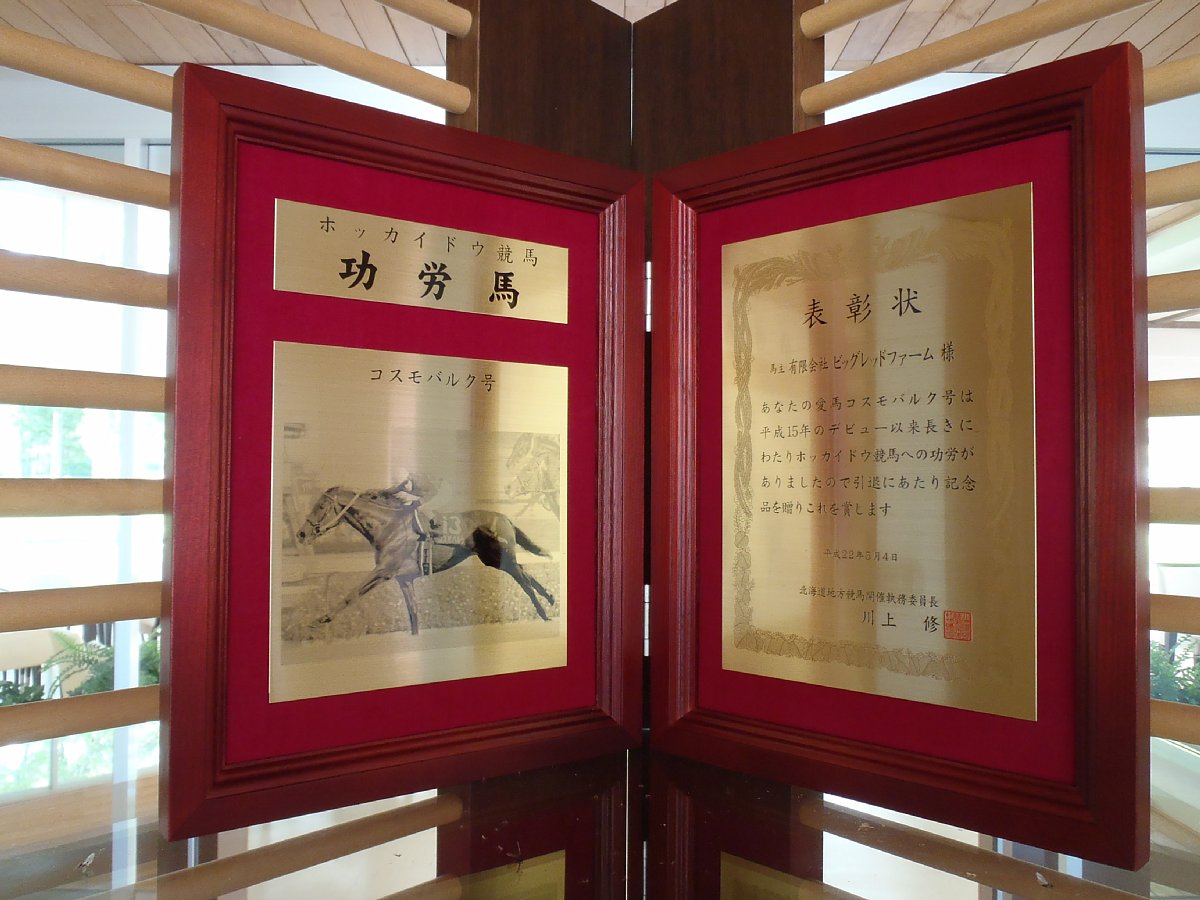 ホッカイドウ競馬
功労馬
コスモバルク号
表彰状
馬主 有限会社 ビッグレッドファーム 様
あなたの愛馬コスモバルク号は
平成15年のデビュー以来長きに
わたりホッカイドウ競馬への功労が
ありましたので引退にあたり記念
品を贈りこれを賞します
平成22年5月4日
北海道地方競馬開催執務委員長
川上 修